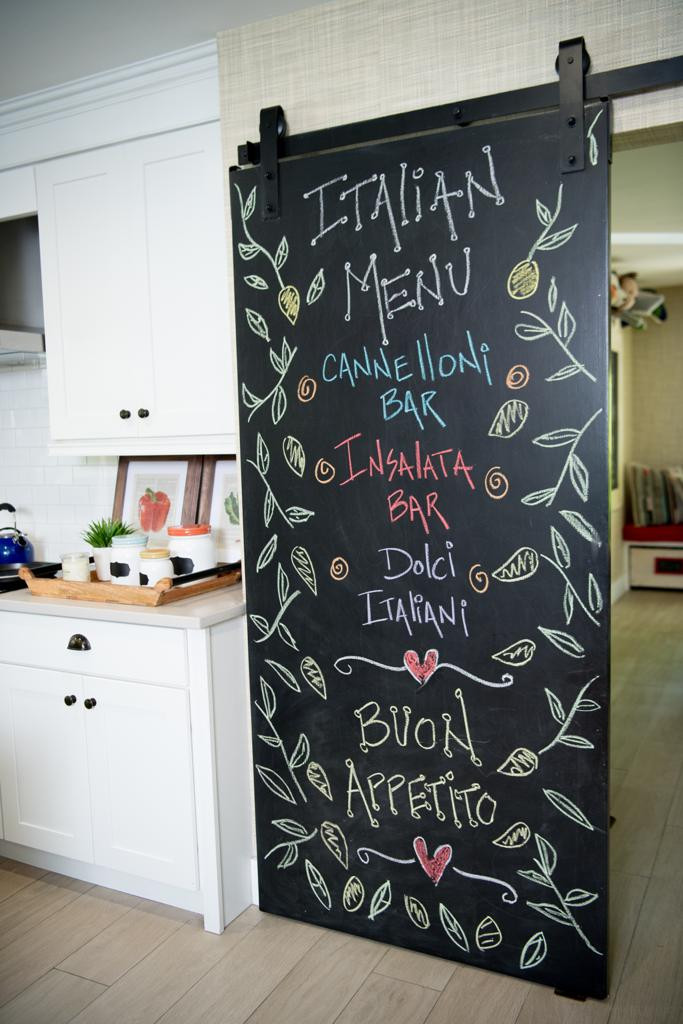 ITALIAN
MENU
CANNELLONI
BAR
INSALATA
BAR
DOLCI
ITALIANI
BUON
APPETITO